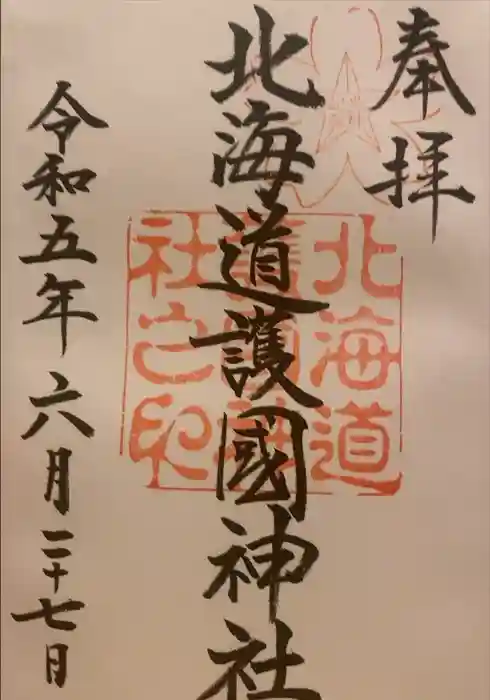 奉拝
北海道護國神社
北海道護國神社之印
令和五年六月二十七日